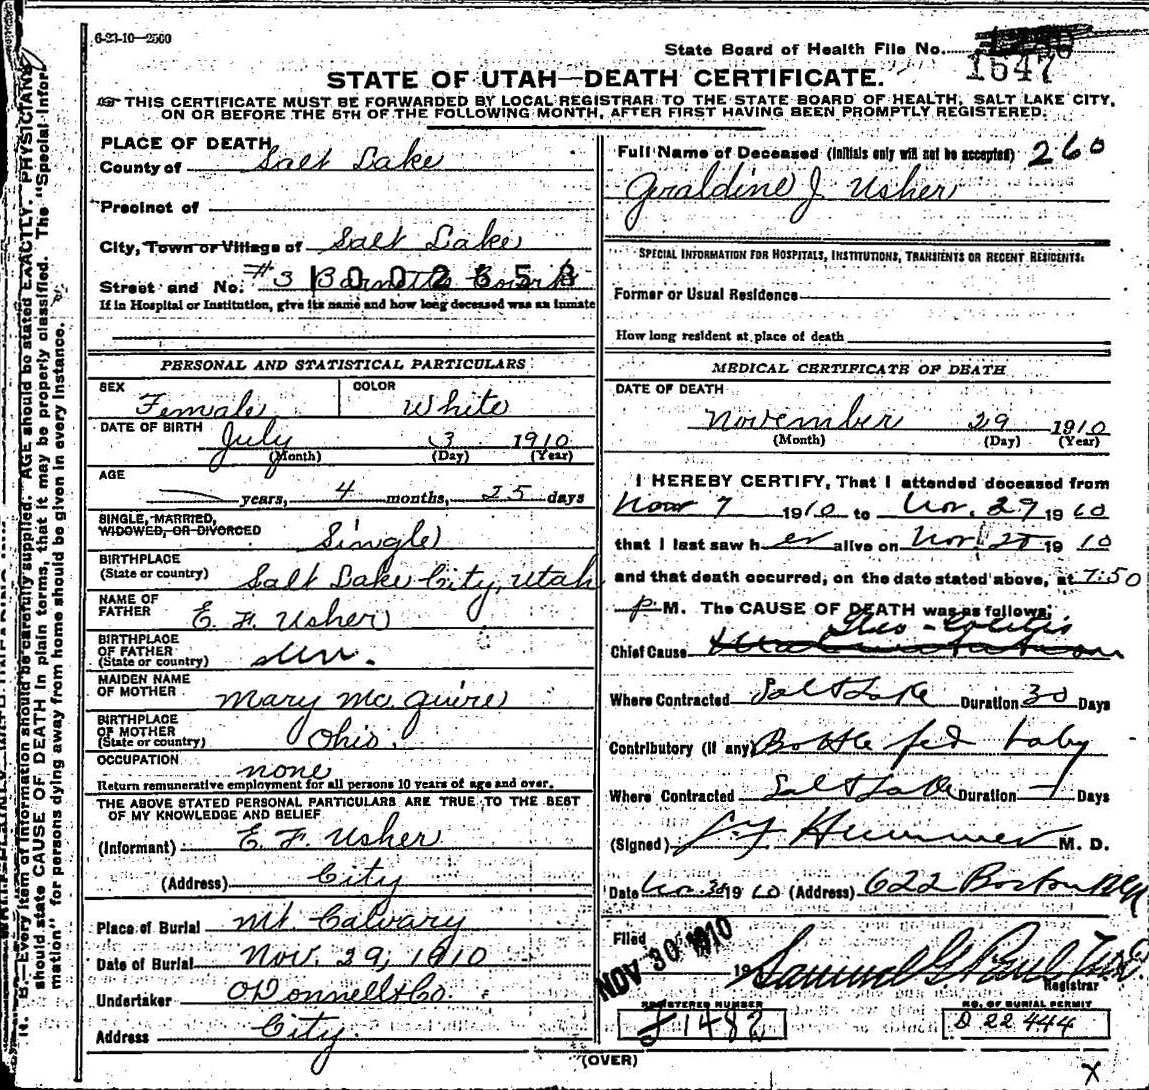 6-23-10—2500
State Board of Health File No.
1547
STATE OF UTAH—DEATH CERTIFICATE.
THIS CERTIFICATE MUST BE FORWARDED BY LOCAL REGISTRAR TO THE STATE BOARD OF HEALTH, SALT LAKE CITY,
ON OR BEFORE THE 5TH OF THE FOLLOWING MONTH, AFTER FIRST HAVING BEEN PROMPTLY REGISTERED.
PLACE OF DEATH
County of Salt Lake
Precinct of
City, Town or Village of Salt Lake
Street and No. #3
1002658
If in Hospital or Institution, give its name and how long deceased was an inmate
PERSONAL AND STATISTICAL PARTICULARS
SEX Female COLOR White
DATE OF BIRTH July 3 1910
(Month) (Day) (Year)
AGE
years, 4 months, 25 days
SINGLE, MARRIED,
WIDOWED, OR DIVORCED Single
BIRTHPLACE
(State or country) Salt Lake City, Utah
NAME OF
FATHER E. F. Usher
BIRTHPLACE
OF FATHER
(State or country)
MAIDEN NAME
OF MOTHER Mary McGuire
BIRTHPLACE
OF MOTHER
(State or country) Ohio.
OCCUPATION none
Return remunerative employment for all persons 10 years of age and over.
THE ABOVE STATED PERSONAL PARTICULARS ARE TRUE TO THE BEST
OF MY KNOWLEDGE AND BELIEF
(Informant) E. F. Usher
(Address) City
Place of Burial Mt. Calvary
Date of Burial Nov. 29, 1910
Undertaker O'Donnell & Co.
Address City.
Full Name of Deceased (Initials only will not be accepted) 260
Geraldine J. Usher
SPECIAL INFORMATION FOR HOSPITALS, INSTITUTIONS, TRANSIENTS OR RECENT RESIDENTS:
Former or Usual Residence
How long resident at place of death
MEDICAL CERTIFICATE OF DEATH
DATE OF DEATH
November 29 1910
(Month) (Day) (Year)
I HEREBY CERTIFY, That I attended deceased from
Nov 7 1910 to Nov. 29 1910
that I last saw her alive on Nov 19 10
and that death occurred, on the date stated above, at 7:50
P M. The CAUSE OF DEATH was as follows:
Ileo-Colitis
Chief Cause
Where Contracted Salt Lake Duration 30 Days
Contributory (if any) Bottle fed baby
Where Contracted Salt Lake Duration Days
(Signed) Hummer M. D.
Date Nov. 30 1910 (Address) 622 Boston Bldg
Filed NOV 30 1910 19 Samuel G. Paul
Registrar
REGISTERED NUMBER
J 1482
NO. OF BURIAL PERMIT
D 22444
(OVER)
X
N. B.—Every item of information should be carefully supplied. AGE should be stated EXACTLY. PHYSICIANS
should state CAUSE OF DEATH in plain terms, that it may be properly classified. The "Special Infor-
mation" for persons dying away from home should be given in every instance.